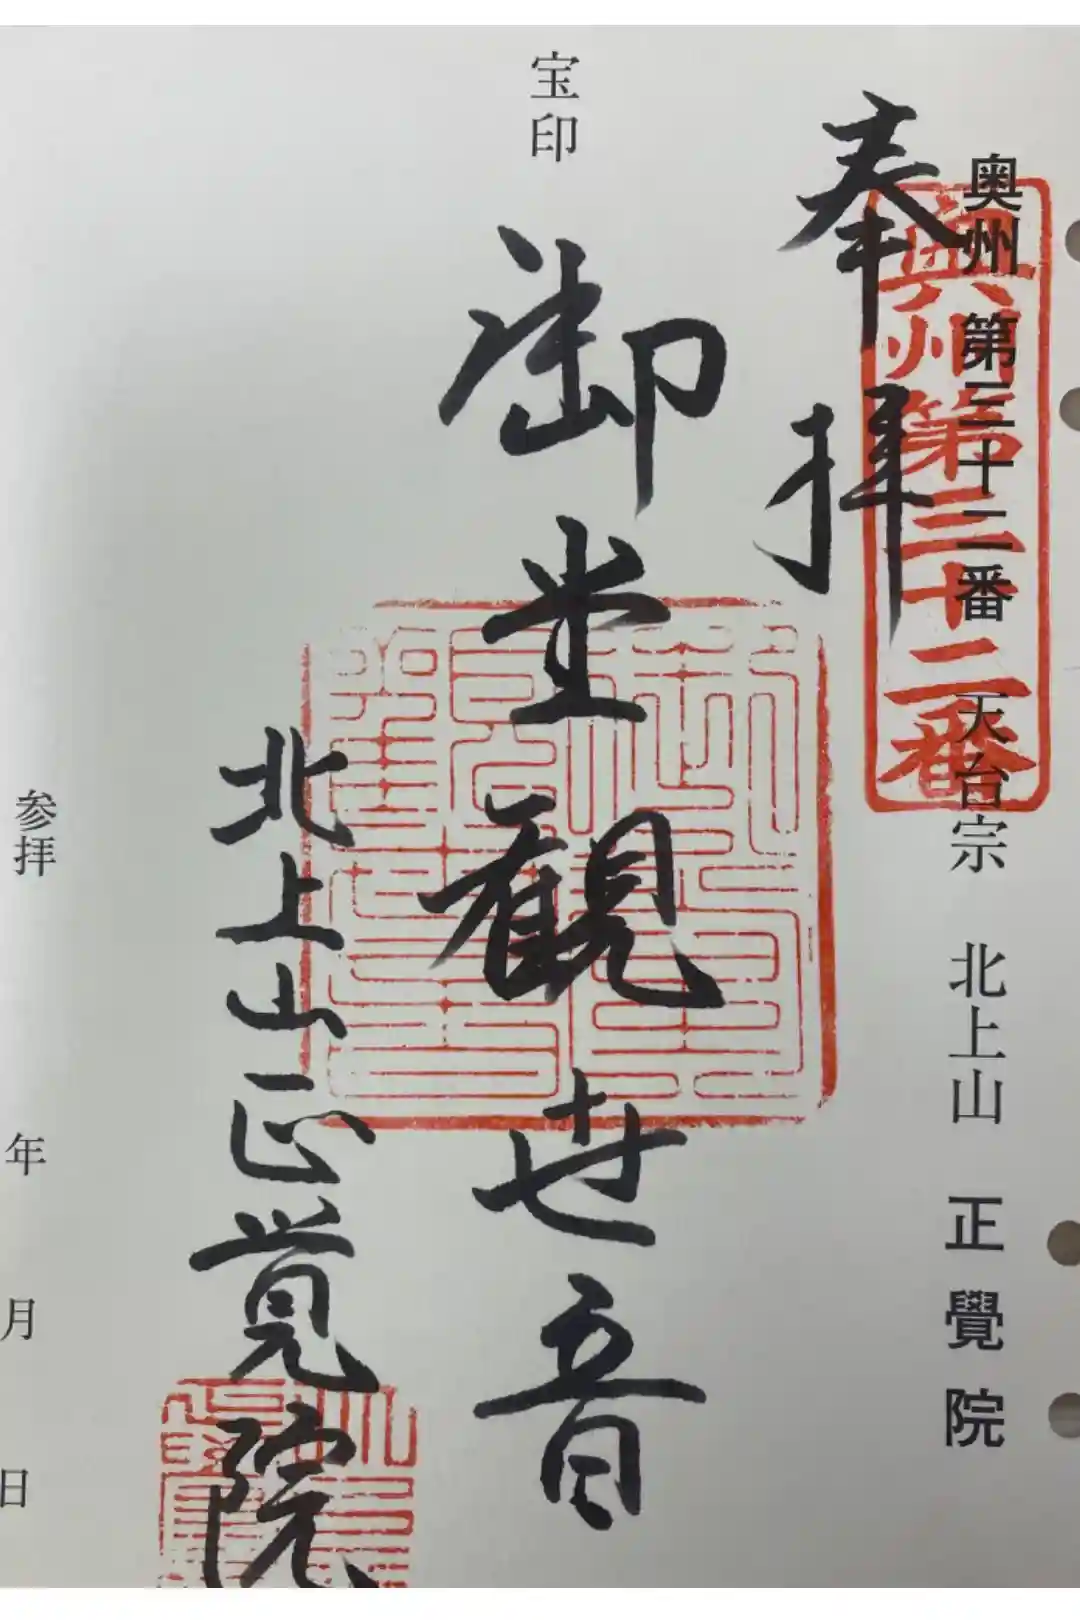 奥州 第三十二番 天台宗 北上山 正覺院
奥州第三十二番
奉拝
宝印
御堂觀世音
北上山正覚院
参拝 年 月 日